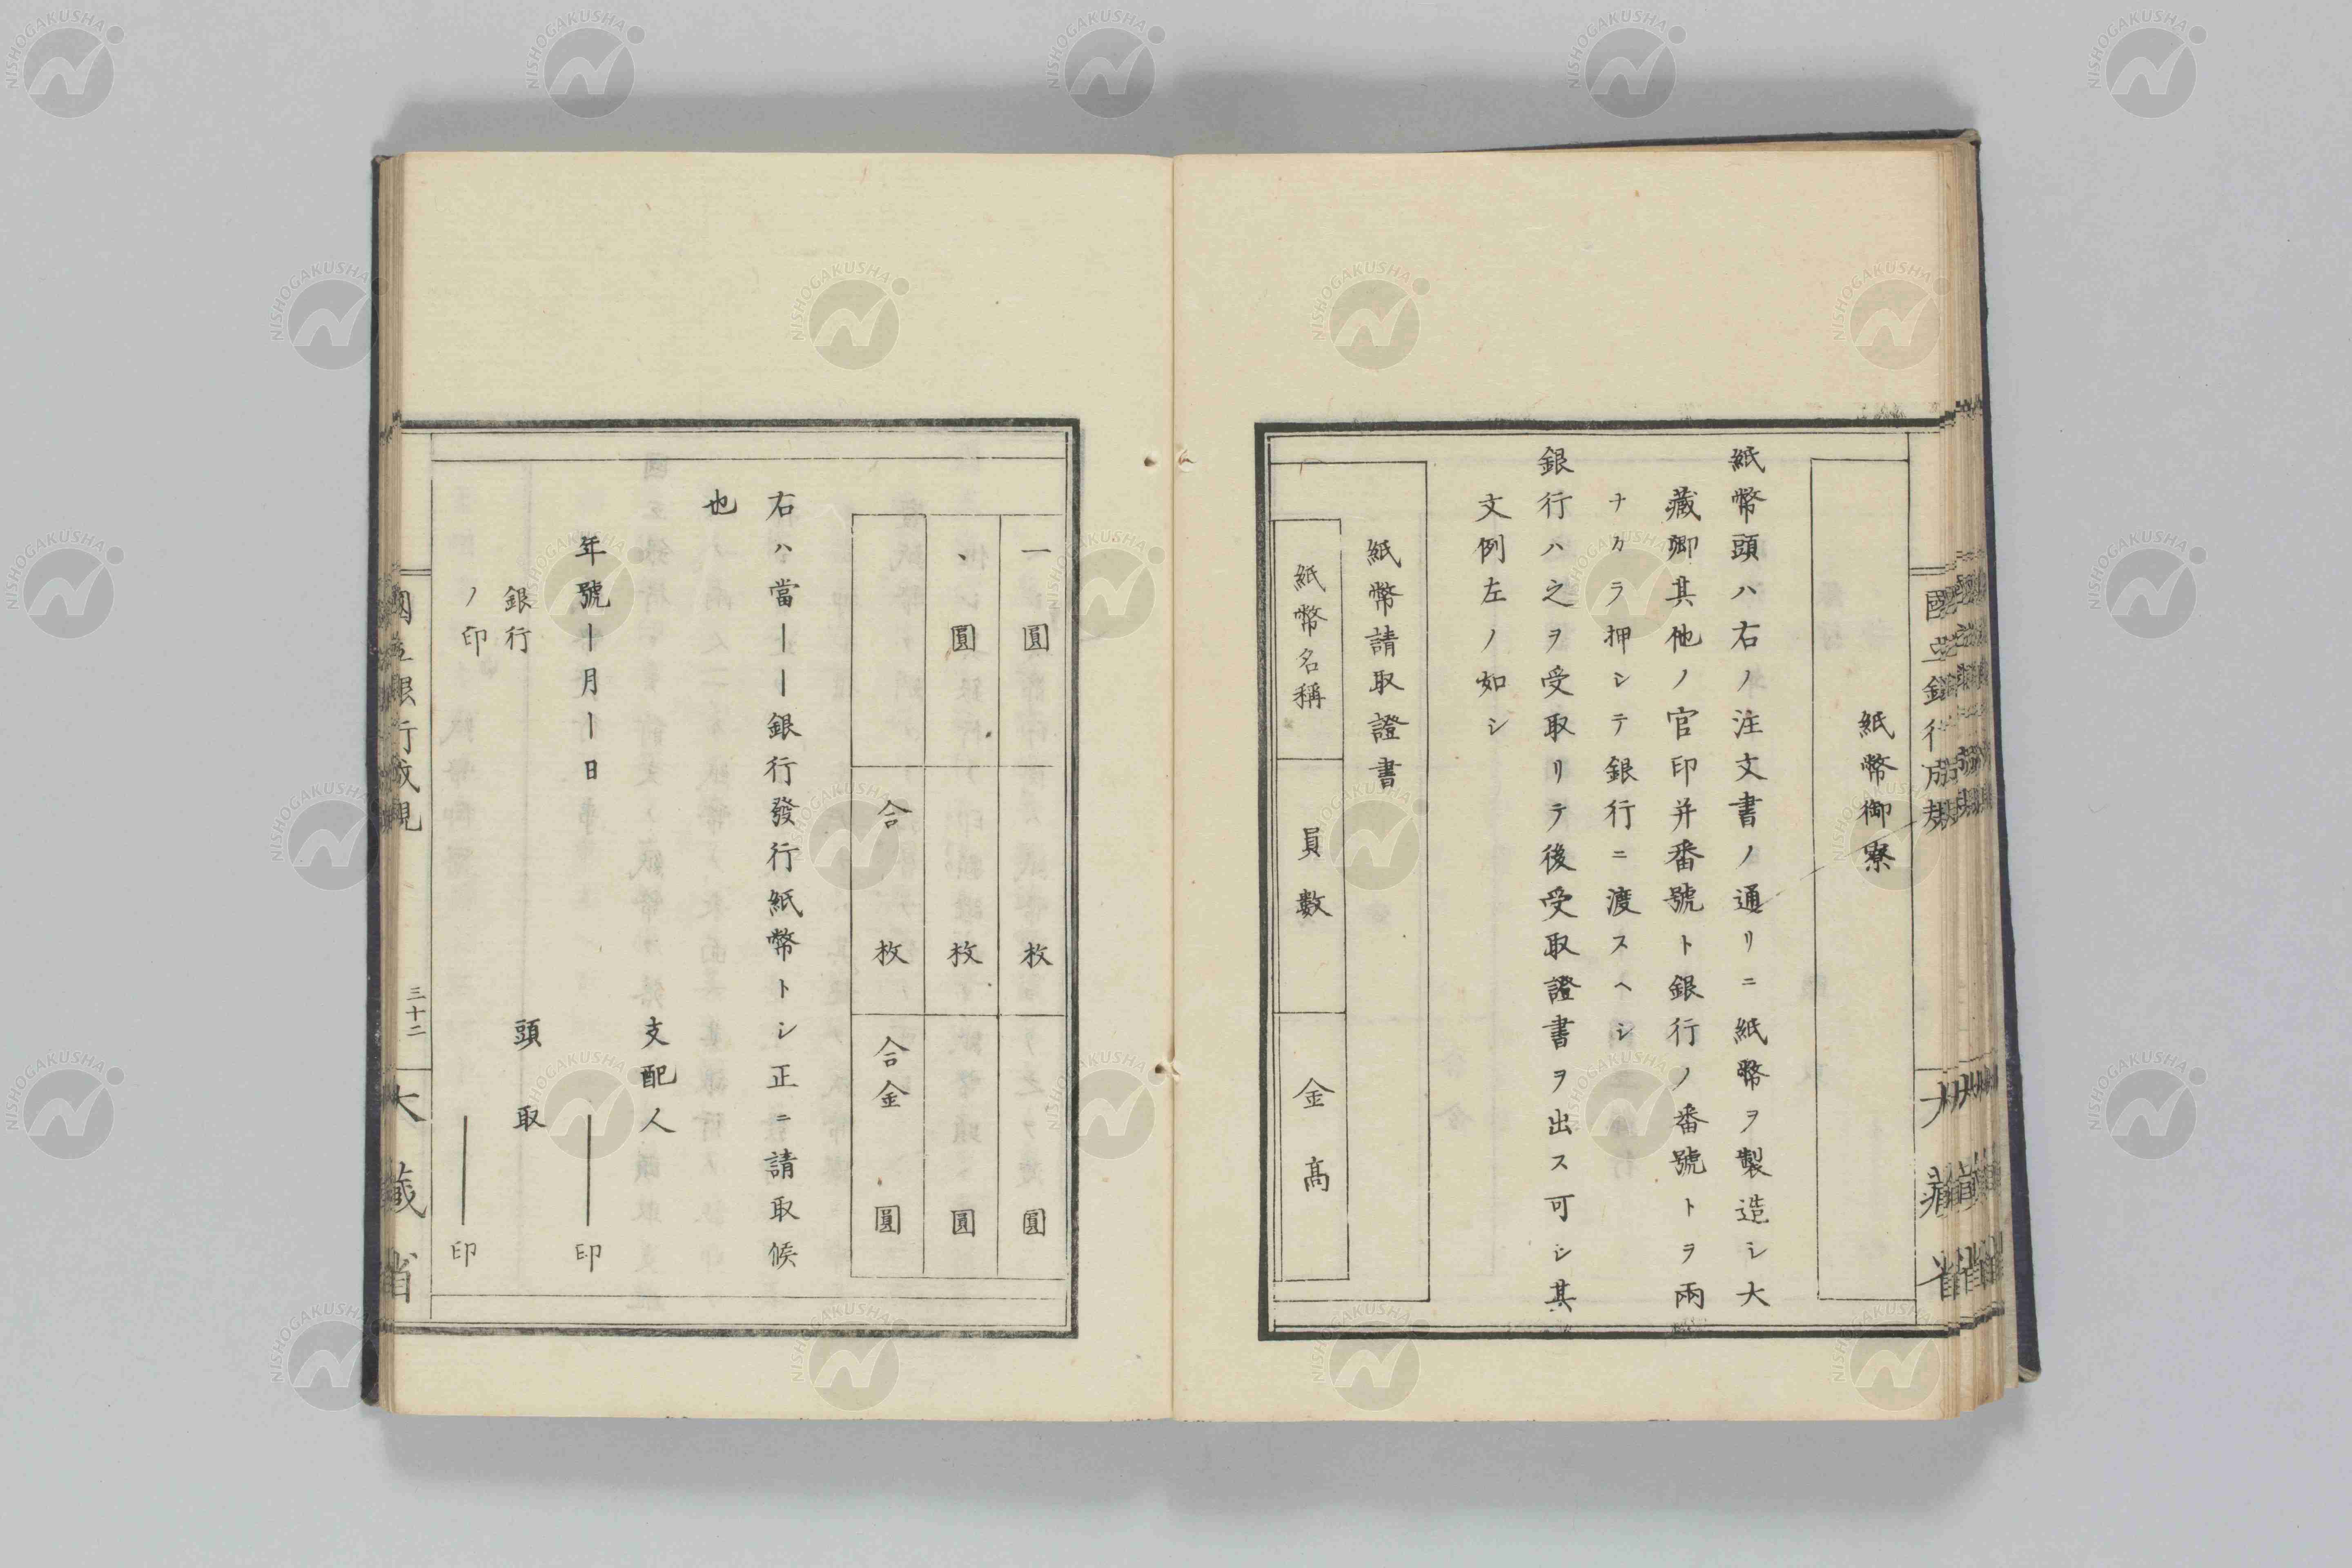 紙幣御寮
紙幣頭ハ右ノ注文書ノ通リニ紙幣ヲ製造シ大
藏卿其他ノ官印并番號ト銀行ノ番號トヲ兩
ナカラ押シテ銀行ニ渡スヘシ
銀行ハ之ヲ受取リテ後受取證書ヲ出ス可シ其
文例左ノ如シ
紙幣請取證書
紙幣名稱 員數 金高
一圓 枚 圓
、圓 枚 圓
合 枚 合金 圓
右ハ當——銀行發行紙幣トシ正ニ請取候
也
年號—月—日
支配人
印
銀行
ノ印
頭取
印
國立銀行成規
三十二
大藏省
NISHOGAKUSHA